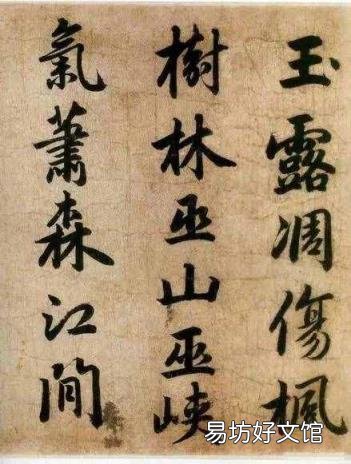 玉露凋傷楓
樹林巫山巫峡
氣蕭森江間
易坊好文馆